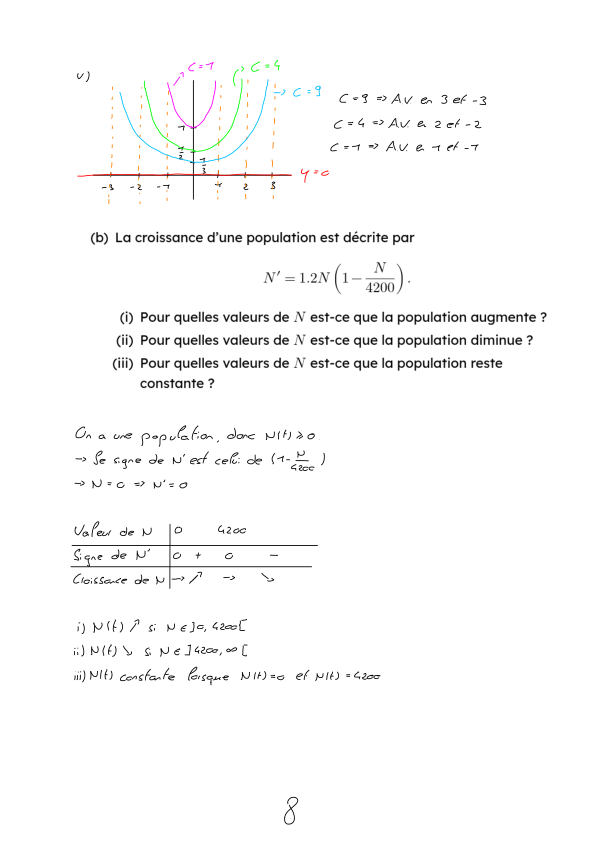 v)
C=1
C=4
→ C=9
C=9 => AV en 3 et -3
C=4 => AV en 2 et -2
C=1 => AV en 1 et -1
1
1/2
1/3
y=0
-3 -2 -1 1 2 3
(b) La croissance d'une population est décrite par
N' = 1.2N (1 − N/4200).
(i) Pour quelles valeurs de N est-ce que la population augmente ?
(ii) Pour quelles valeurs de N est-ce que la population diminue ?
(iii) Pour quelles valeurs de N est-ce que la population reste
constante ?
On a une population, donc N(t) ≥ 0
→ le signe de N' est celui de (1- N/4200)
→ N = 0 => N' = 0
Valeur de N | 0 4200
Signe de N' | 0 + 0 −
Croissance de N | → ↗ → ↘
i) N(t) ↗ si N ∈ ]0, 4200[
ii) N(t) ↘ si N ∈ ]4200, ∞[
iii) N(t) constante lorsque N(t) = 0 et N(t) = 4200
8